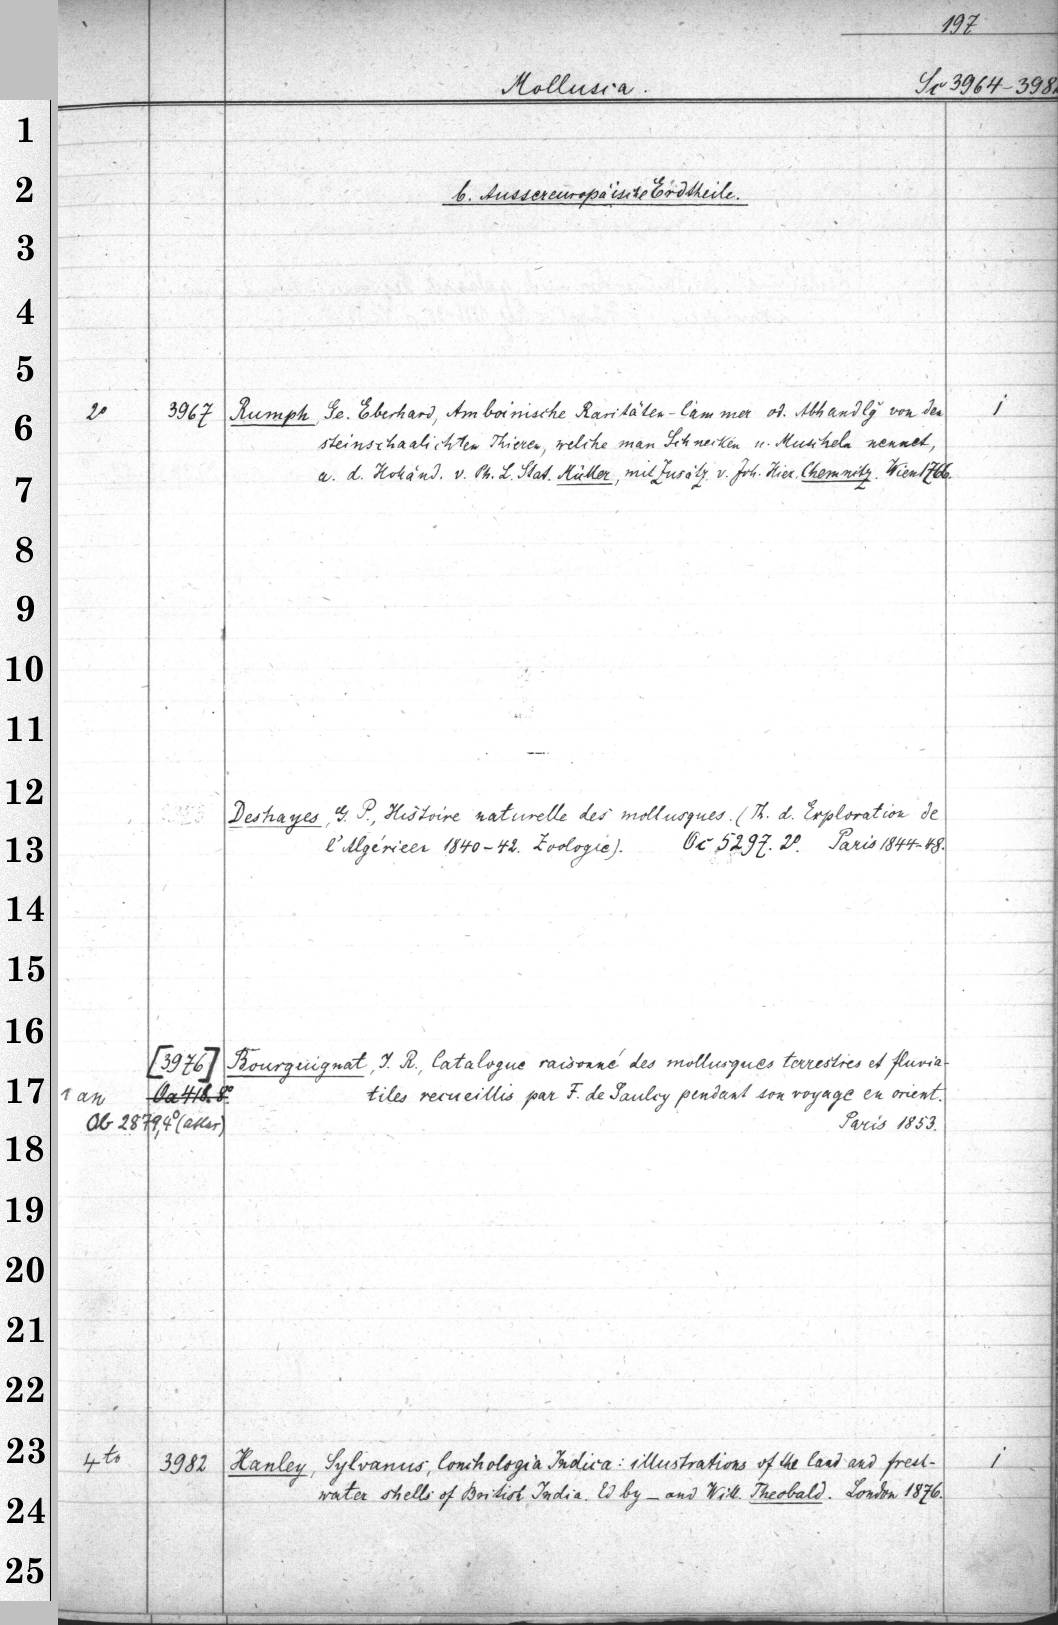 197
Mollusca. Sc 3964–398
b. Aussereuropäische Erdtheile.
2° 3967 Rumph, Ge. Eberhard, Amboinische Raritäten-Cammer od. Abhandlg von den 1
steinschaalichten Thieren, welche man Schnecken u. Muscheln nennet,
a. d. Holländ. v. Ph. L. Stat. Müller, mit Zusätz. v. Joh. Hier. Chemnitz. Wien 1766.
Deshayes, G. P., Histoire naturelle des mollusques. (Th. d. Exploration de
l'Algérie 1840–42. Zoologie). Oc 5297. 2°. Paris 1844–48.
[3976] Bourguignat, J. R., Catalogue raisonné des mollusques terrestres et fluvia-
1 an Oa 418. 8° tiles recueillis par F. de Saulcy pendant son voyage en orient.
Ob 2879, 4° (atlas) Paris 1853.
4to 3982 Hanley, Sylvanus, Conchologia Indica: illustrations of the land and fresh- 1
water shells of British India. Ed by – and Will. Theobald. London 1876.
1
2
3
4
5
6
7
8
9
10
11
12
13
14
15
16
17
18
19
20
21
22
23
24
25